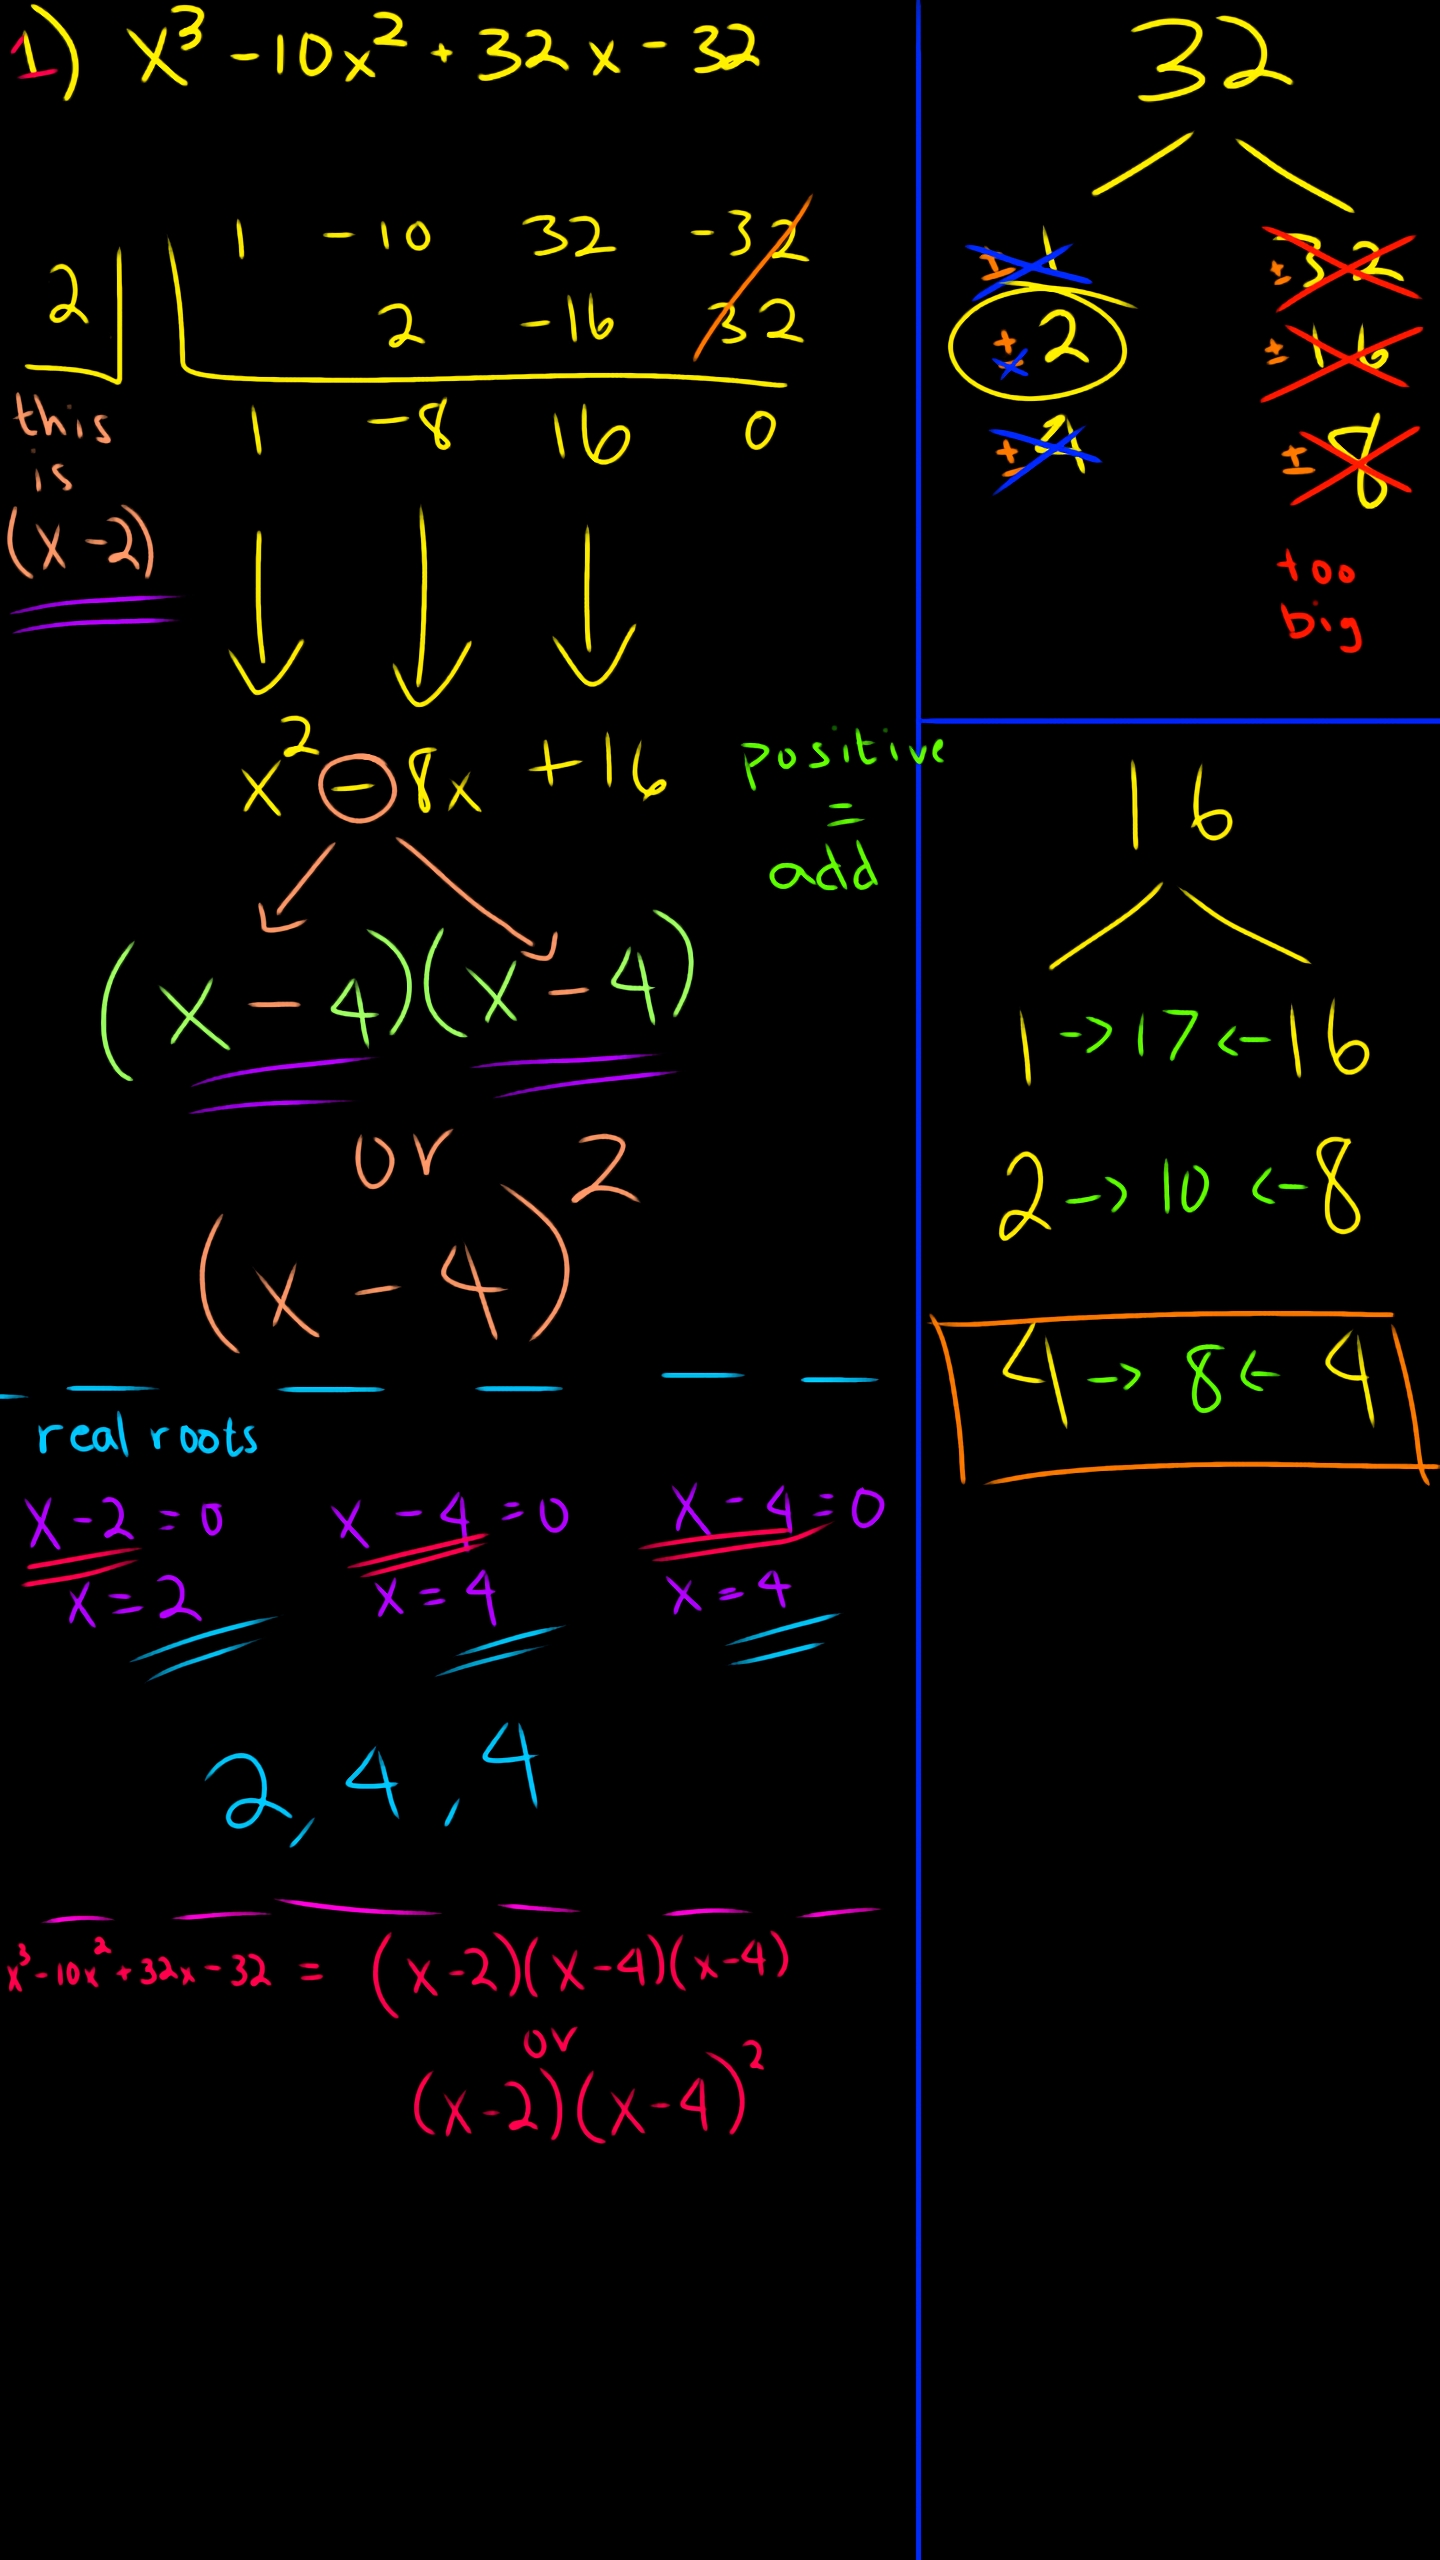 1) x³ - 10x² + 32x - 32
2 | 1 -10 32 -32
2 -16 32
1 -8 16 0
this
is
(x-2)
x² - 8x + 16
positive
=
add
(x - 4)(x - 4)
or
(x - 4)²
real roots
x-2=0 x-4=0 x-4=0
x=2 x=4 x=4
2, 4, 4
x³-10x²+32x-32 = (x-2)(x-4)(x-4)
or
(x-2)(x-4)²
32
± 1 ± 32
± 2 ± 16
± 4 ± 8
too
big
16
1 -> 17 <- 16
2 -> 10 <- 8
4 -> 8 <- 4